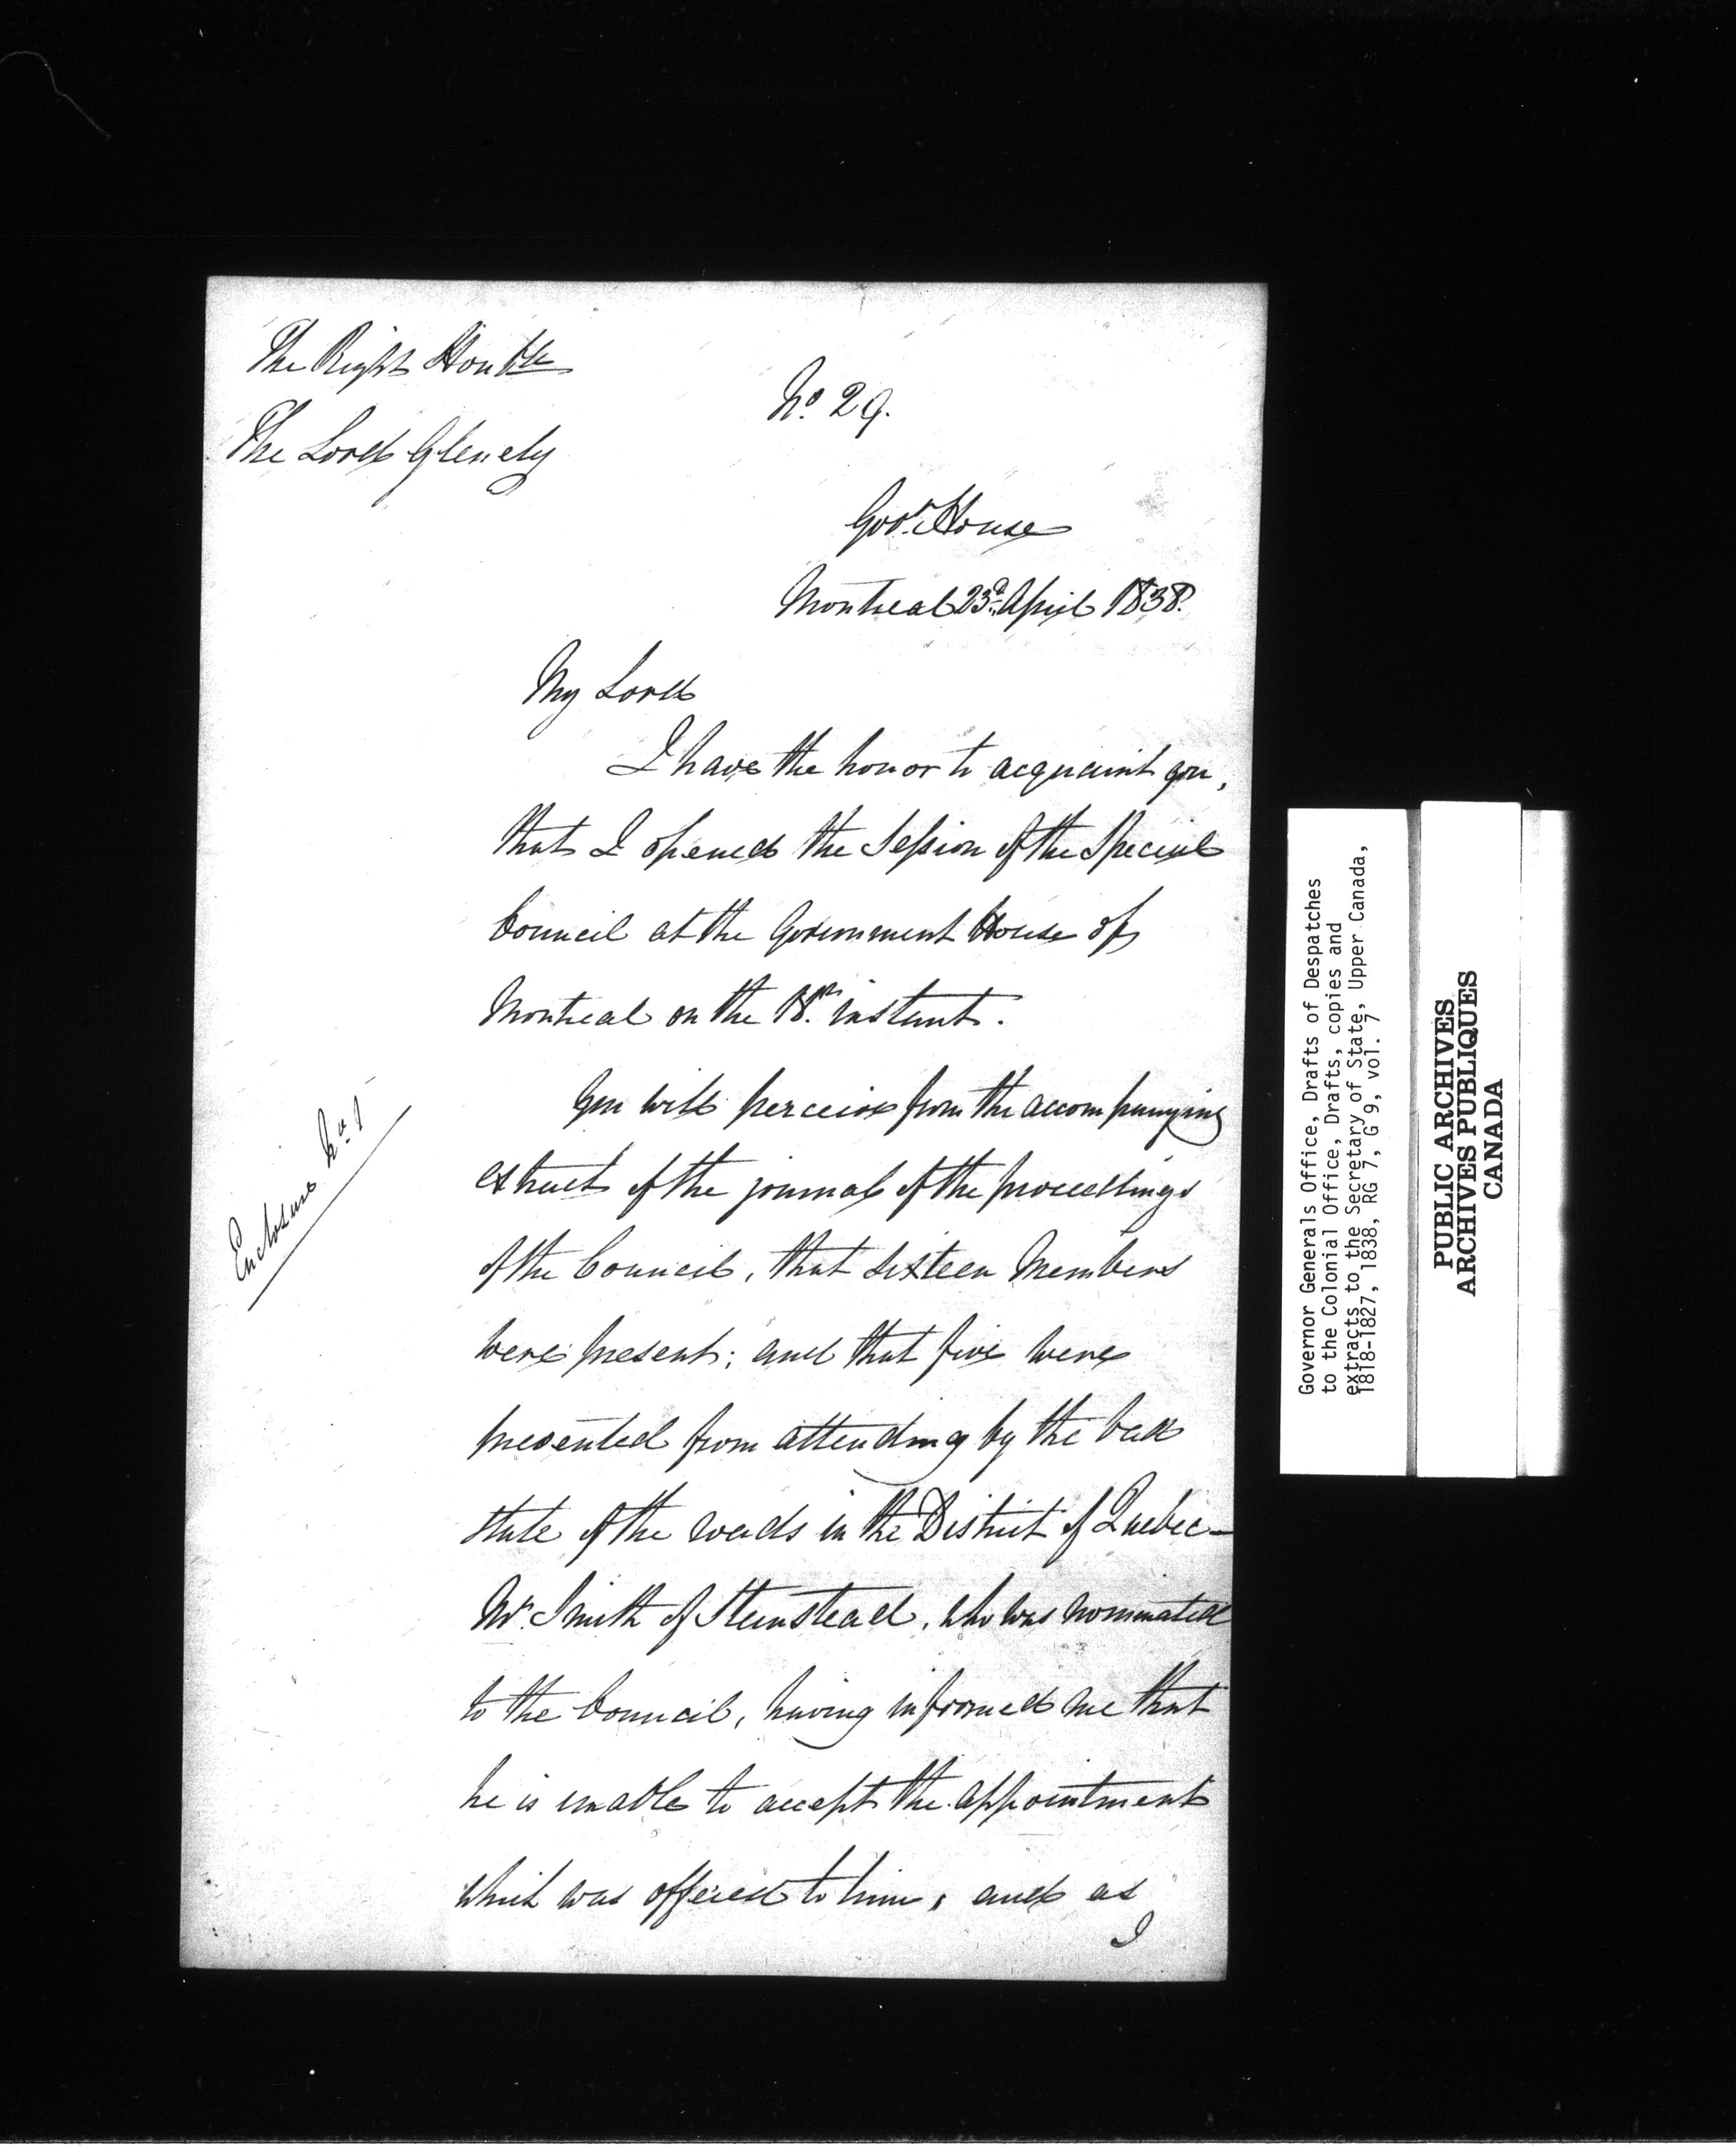 The Right Honble
The Lord Glenelg
No. 29.
Govt. House
Montreal 23d. April 1838.
My Lord
I have the honor to acquaint you,
that I opened the Session of the Special
Council at the Government House of
Montreal on the 18th. instant.
Enclosure No. 1
You will perceive from the accompanying
extract of the journal of the proceedings
of the Council, that sixteen Members
were present; and that five were
prevented from attending by the bad
state of the roads in the District of Quebec—
Mr. Smith of Stanstead, who was nominated
to the Council, having informed me that
he is unable to accept the appointment
which was offered to him, and as
I
Governor Generals Office, Drafts of Despatches
to the Colonial Office, Drafts, copies and
extracts to the Secretary of State, Upper Canada,
1818-1827, 1838, RG 7, G 9, vol. 7
PUBLIC ARCHIVES
ARCHIVES PUBLIQUES
CANADA